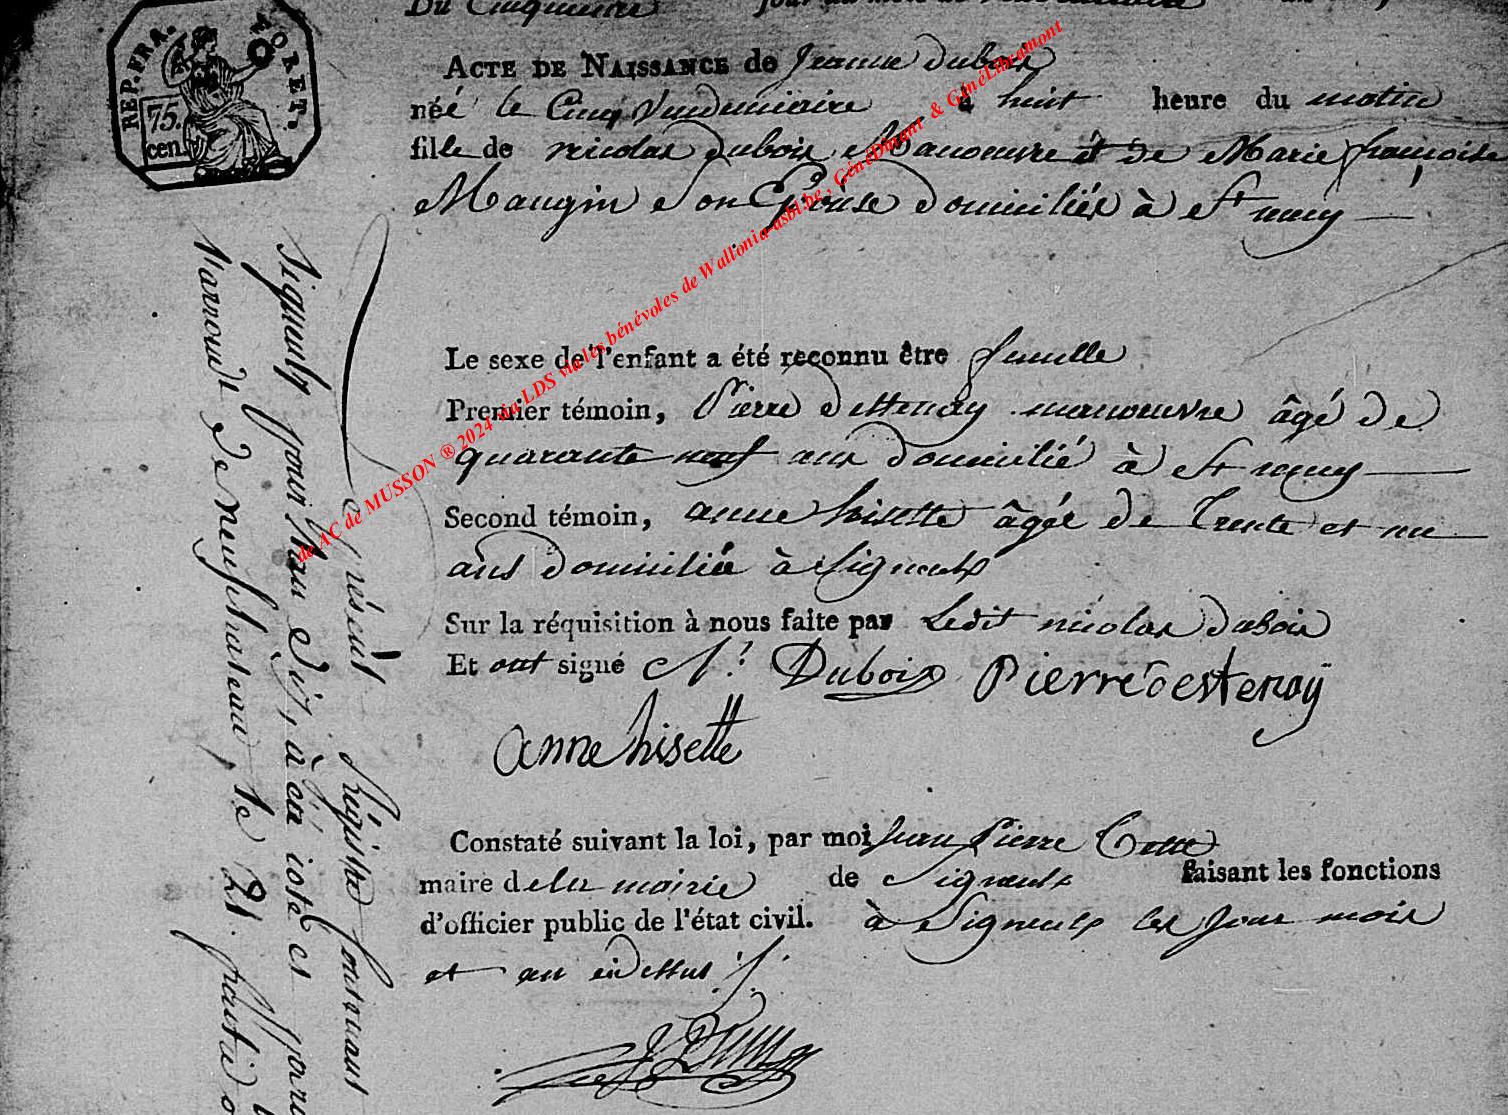 Du Cinquieme jour du mois de
ACTE DE NAISSANCE de Jeanne dubois
née le Cinq Vendemiaire à huit heure du matin
fille de nicolas dubois Manoeuvre et de Marie françoise
Maugin Son Epouse domiciliés à St remy
Le sexe de l'enfant a été reconnu être femelle
Premier témoin, Pierre destenay manoeuvre âgé de
quarante neuf ans domicilié à St remy
Second témoin, anne hisette âgée de Trente et un
ans domiciliée à Signeulx
Sur la réquisition à nous faite par Ledit nicolas dubois
Et ont signé N: Dubois Pierre Destenay
anne hisette
Constaté suivant la loi, par moi jean Pierre
maire de la mairie de Signeulx faisant les fonctions
d'officier public de l'état civil. à Signeulx les jour mois
et an
REP. FRA.
75.
cen.
Le présent Régistre contenant
à été coté et
de neufchateau, le 21.
de AC de MUSSON ® 2024 via LDS via les bénévoles de Wallonia-asbl.be, GénéDinant & GénéLibramont